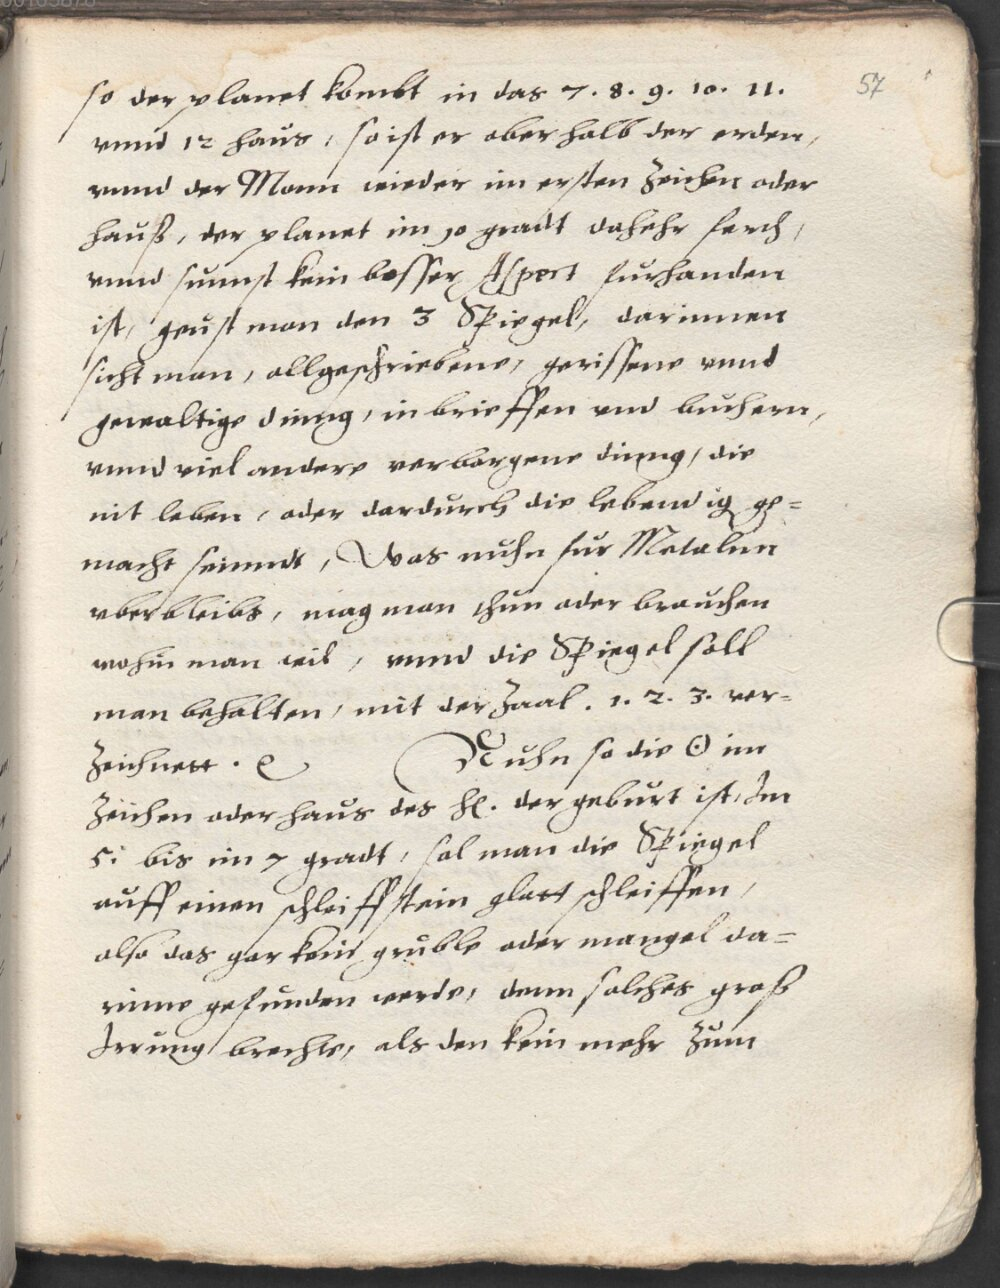 57
so der planet kombt in das 7. 8. 9. 10. 11.
vnnd 12 haus, so ist er oberhalb der erden,
vnnd der Monn wieder im ersten Zeichen oder
hauß, der planet im 10 gradt dasehr
vnnd sunnst kein besser Aspect furhanden
ist, geust man den 3 Spiegel, darinnen
sicht man, allgeschriebene, gerissene vnnd
gewaltige dinng, in brieffen vnd buchern,
vnnd viel andere verborgene dinng, die
nit leben, oder dardurch die lebendig ge=
macht seinndt, Was nuhn fur Metalnn
vberbleibt, mag man thun oder brauchen
wohin man wil, vnnd die Spiegel soll
man behalten, mit der Zaal. 1. 2. 3. ver=
Zeichnett. Nuhn so die ☉ im
Zeichen oder haus des der geburt ist, Im
5. bis im 7 gradt, sol man die Spiegel
auff einen schleiffstein glatt schleiffen,
also das gar kein gruble oder mangel da=
rinne gefunden werde, denn solches groß
Irrung brechte, als den kein mehr Zum